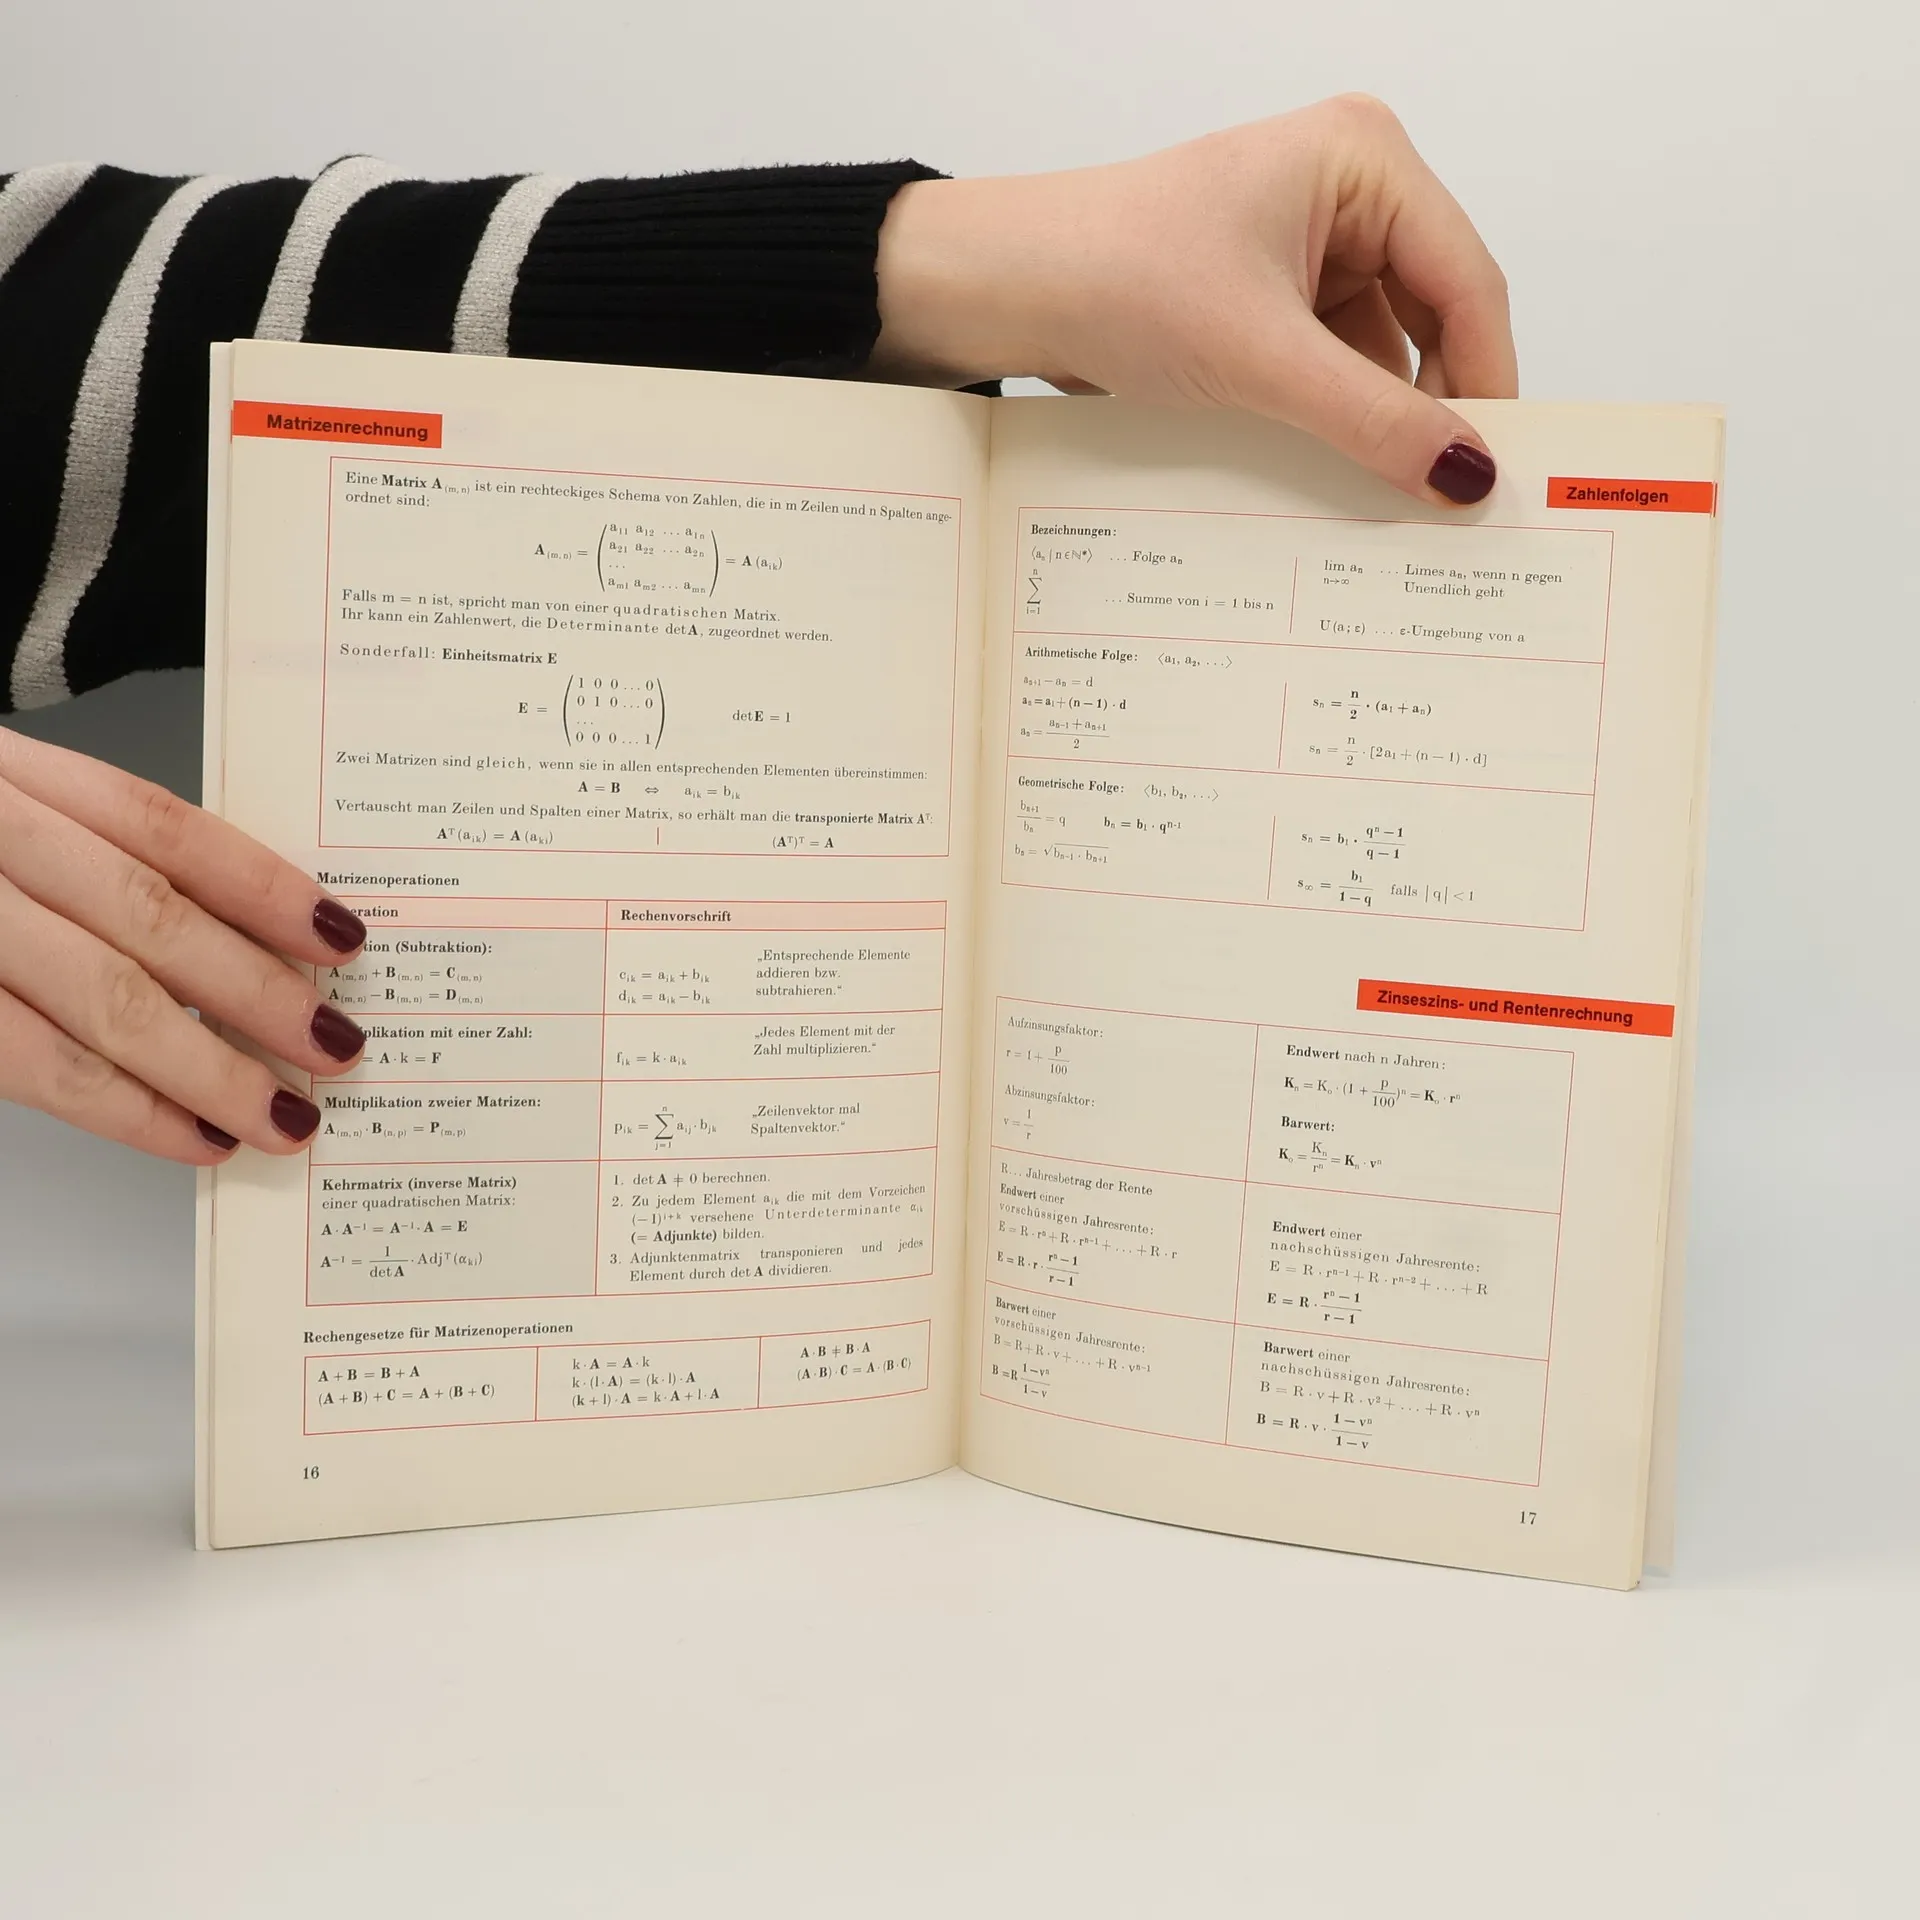 Matrizenrechnung
Eine Matrix A (m, n) ist ein rechteckiges Schema von Zahlen, die in m Zeilen und n Spalten ange-
ordnet sind:
A (m, n) = ( a11 a12 ... a1n
a21 a22 ... a2n
...
am1 am2 ... amn ) = A (aik)
Falls m = n ist, spricht man von einer quadratischen Matrix.
Ihr kann ein Zahlenwert, die Determinante det A, zugeordnet werden.
Sonderfall: Einheitsmatrix E
E = ( 1 0 0 ... 0
0 1 0 ... 0
...
0 0 0 ... 1 ) det E = 1
Zwei Matrizen sind gleich, wenn sie in allen entsprechenden Elementen übereinstimmen:
A = B ⇔ aik = bik
Vertauscht man Zeilen und Spalten einer Matrix, so erhält man die transponierte Matrix Aᵀ:
Aᵀ (aik) = A (aki) | (Aᵀ)ᵀ = A
Matrizenoperationen
eration Rechenvorschrift
tion (Subtraktion):
A (m, n) + B (m, n) = C (m, n)
A (m, n) − B (m, n) = D (m, n)
cik = aik + bik
dik = aik − bik
„Entsprechende Elemente
addieren bzw.
subtrahieren.“
plikation mit einer Zahl:
= A · k = F
fik = k · aik
„Jedes Element mit der
Zahl multiplizieren.“
Multiplikation zweier Matrizen:
A (m, n) · B (n, p) = P (m, p)
pik = n ∑ j=1 aij · bjk
„Zeilenvektor mal
Spaltenvektor.“
Kehrmatrix (inverse Matrix)
einer quadratischen Matrix:
A · A⁻¹ = A⁻¹ · A = E
A⁻¹ = 1 / det A · Adjᵀ (αki)
1. det A ≠ 0 berechnen.
2. Zu jedem Element aik die mit dem Vorzeichen
(−1)ⁱ⁺ᵏ versehene Unterdeterminante αik
(= Adjunkte) bilden.
3. Adjunktenmatrix transponieren und jedes
Element durch det A dividieren.
Rechengesetze für Matrizenoperationen
A + B = B + A
(A + B) + C = A + (B + C)
k · A = A · k
k · (l · A) = (k · l) · A
(k + l) · A = k · A + l · A
A · B ≠ B · A
(A · B) · C = A · (B · C)
16
Zahlenfolgen
Bezeichnungen:
⟨an | n ∈ ℕ*⟩ ... Folge an
n ∑ i=1 ... Summe von i = 1 bis n
lim an n→∞ ... Limes an, wenn n gegen
Unendlich geht
U (a; ε) ... ε-Umgebung von a
Arithmetische Folge: ⟨a1, a2, ...⟩
an+1 − an = d
an = a1 + (n − 1) · d
an = (an−1 + an+1) / 2
sn = n/2 · (a1 + an)
sn = n/2 · [2a1 + (n − 1) · d]
Geometrische Folge: ⟨b1, b2, ...⟩
bn+1 / bn = q bn = b1 · qⁿ⁻¹
bn = √(bn−1 · bn+1)
sn = b1 · (qⁿ − 1) / (q − 1)
s∞ = b1 / (1 − q) falls | q | < 1
Zinseszins- und Rentenrechnung
Aufzinsungsfaktor:
r = 1 + p/100
Abzinsungsfaktor:
v = 1/r
Endwert nach n Jahren:
Kn = Ko · (1 + p/100)ⁿ = Ko · rⁿ
Barwert:
Ko = Kn / rⁿ = Kn · vⁿ
R ... Jahresbetrag der Rente
Endwert einer
vorschüssigen Jahresrente:
E = R · rⁿ + R · rⁿ⁻¹ + ... + R · r
E = R · r · (rⁿ − 1) / (r − 1)
Endwert einer
nachschüssigen Jahresrente:
E = R · rⁿ⁻¹ + R · rⁿ⁻² + ... + R
E = R · (rⁿ − 1) / (r − 1)
Barwert einer
vorschüssigen Jahresrente:
B = R + R · v + ... + R · vⁿ⁻¹
B = R (1 − vⁿ) / (1 − v)
Barwert einer
nachschüssigen Jahresrente:
B = R · v + R · v² + ... + R · vⁿ
B = R · v · (1 − vⁿ) / (1 − v)
17